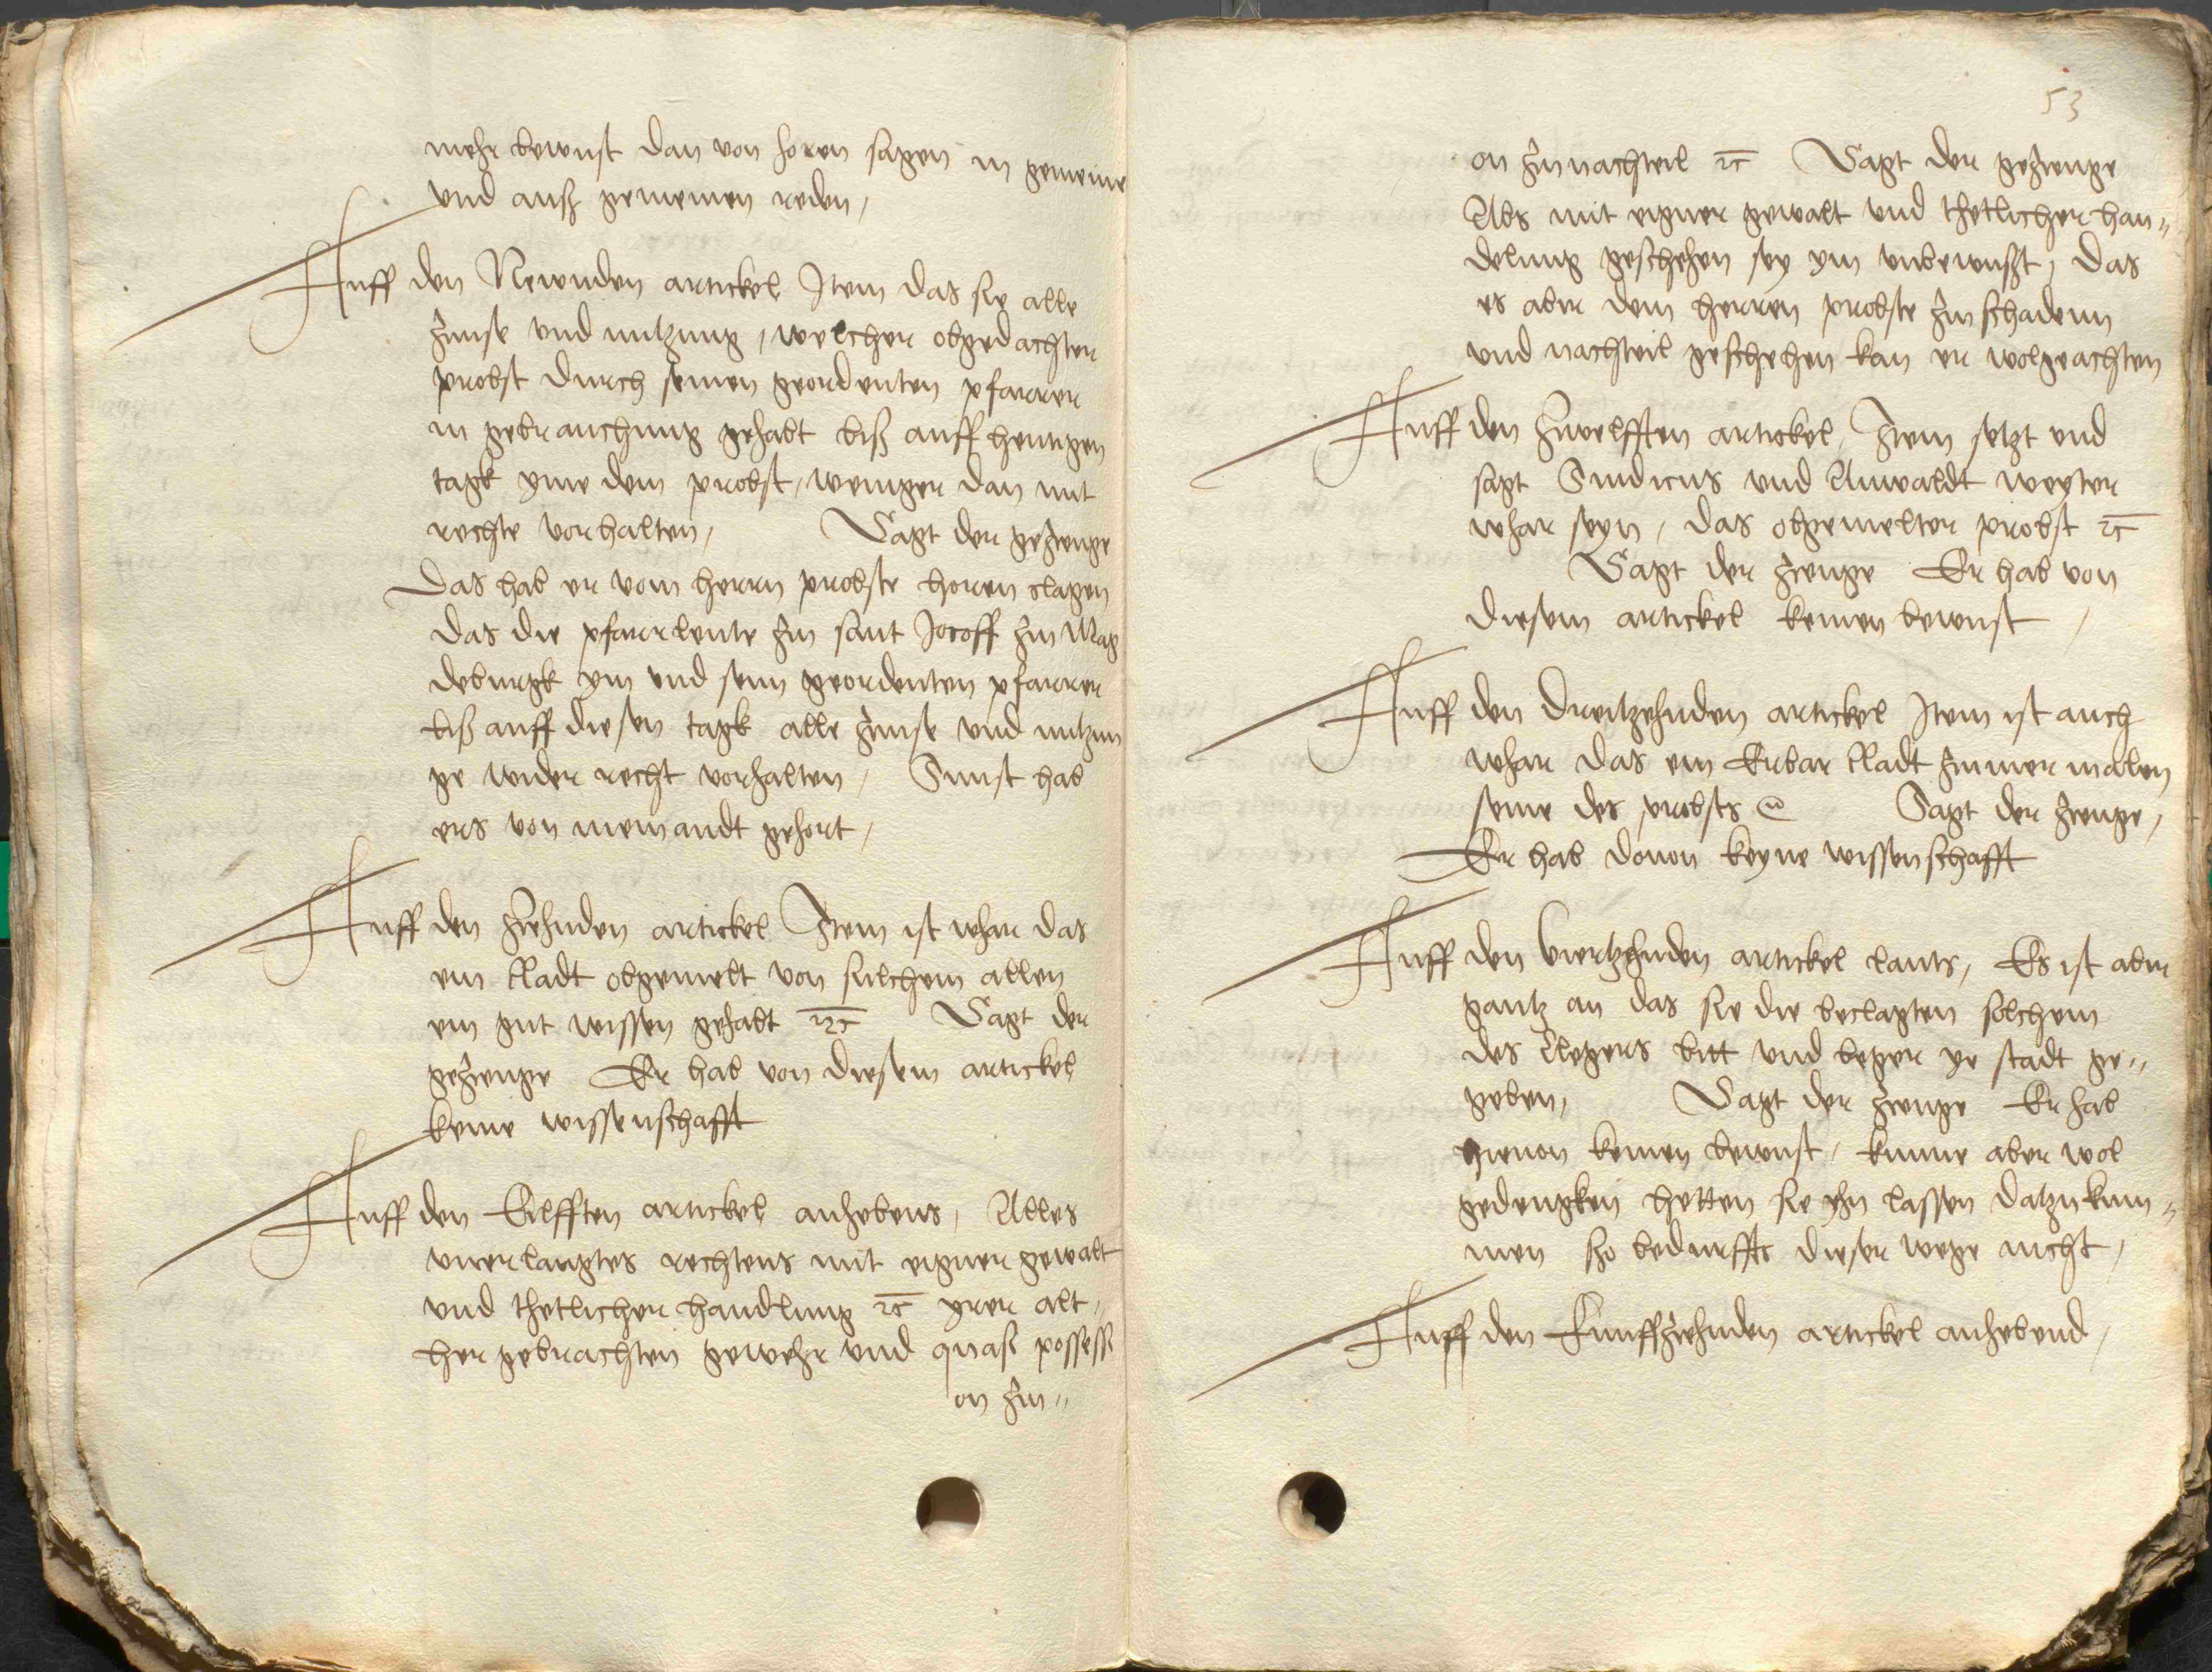 mehr bewust dan von horen sagen in gemeine
und auß gemeinen reden,
Auff den Newnden artickel Item das sie alle
zinse und nutzung, welcher obgedachter
probst durch seinen geordenten pfarrer
in gebrauchung gehabt biß auff heutigen
tagk yme dem probst, weniger dan mit
rechte vorhalten, Sagt der gezeuge
Das hab er vom herrn probste horen clagen
das die pfarrleute zu sant Jocoff zu Mag
deburgk ym und seim geordenten pfarrer
biß auff diesen tagk alle zinse und nutzun
ge wider recht vorhalten, Sunst hab
ers von niemandt gehort,
Auff den zehenden artickel Item ist whar das
ein Radt obgemelt von sulchem allen
ein gut wissen gehabt rc Sagt der
gezeuge Er hab von diesem artickel
keine wissenschafft
Auff den Eilfften artickel anhebens, Alles
unerlangtes rechtens mit eigner gewalt
und thetlicher handlung rc yrer alt,
her gebrachten gewehr und quasi possessi
on zu"
53
on zu nachteil rc Sagt der gezeuge
Abs mit eigner gewalt und thetlicher han"
delung geschehen sey ym unbewußt, das
es aber dem herren probste zu schadenn
und nachteil geschehen kan er wolgeachten
Auff den zwelfften artickel, Item setzt und
sagt Sindicus und Anwaldt weyter
whar seyn, das obgemelter probst rc
Sagt der zeuge Er hab von
diesem artickel keinen bewust,
Auff den Dreitzehnden artickel Item ist auch
whar das ein Erbar Radt zuuermalen
seine des probsts rc Sagt der zeuge,
Er hab douon keyne wissenschafft
Auff den viertzehnden artickel lauts, Es ist aber
gantz an das sie die beclagten solchem
des Clegers bitt und beger ye stadt ge"
geben, Sagt der zeuge Er hab
hieuon keinen bewust, kunne aber wol
gedengken hetten sie yhn lassen datzu kum"
men ßo bedurffts dieser wege nicht,
Auff den Funffzehnden artickel anhebend,